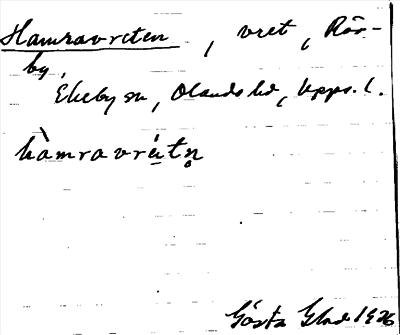 Hamravreten, vret, Rör-
by,
Ekeby sn, Olands hd, Upps. l.
hàmravrétn̥
Gösta 1926